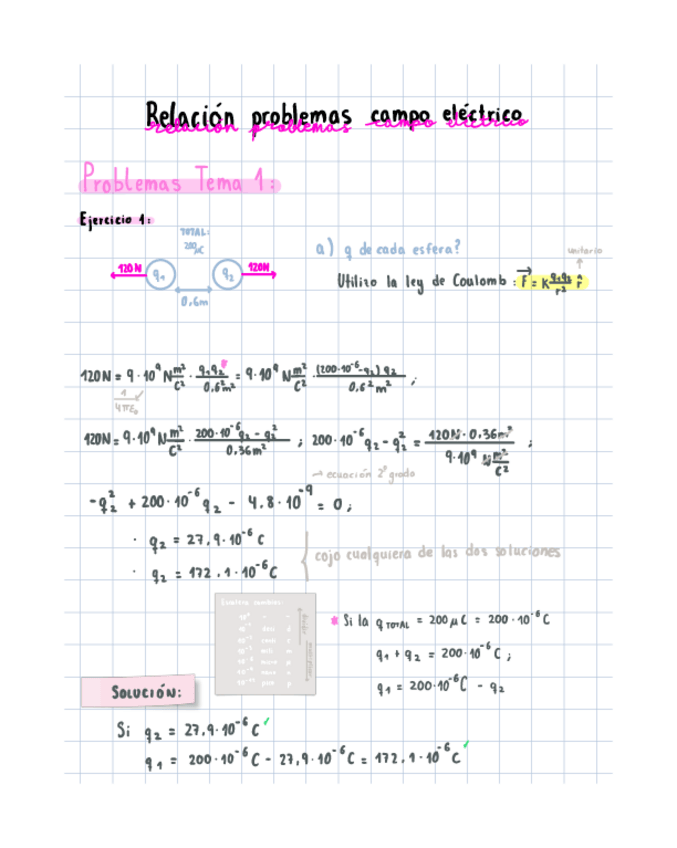 Relación problemas campo eléctrico
relación problemas campo eléctrico
Problemas Tema 1:
Ejercicio 1:
TOTAL:
200 μC
120N
q₁
q₂
120N
0,6m
a) q de cada esfera?
unitario
Utilizo la ley de Coulomb: F⃗ = K q₁q₂/r² r̂
120N = 9·10⁹ N m²/C² · q₁q₂*/0,6²m² = 9·10⁹ N m²/C² · (200·10⁻⁶-q₂)q₂/0,6²m² ;
1/4πε₀
120N = 9·10⁹ N m²/C² · 200·10⁻⁶q₂ - q₂²/0,36m² ; 200·10⁻⁶ q₂ - q₂² = 120N·0,36m²/9·10⁹ N m²/C² ;
→ ecuación 2º grado
-q₂² + 200·10⁻⁶ q₂ - 4,8·10⁻⁹ = 0;
· q₂ = 27,9·10⁻⁶ C
· q₂ = 172,1·10⁻⁶ C
cojo cualquiera de las dos soluciones
* Si la q TOTAL = 200 μC = 200·10⁻⁶ C
q₁ + q₂ = 200·10⁻⁶ C;
q₁ = 200·10⁻⁶C - q₂
SOLUCIÓN:
Si q₂ = 27,9·10⁻⁶ C ✓
q₁ = 200·10⁻⁶ C - 27,9·10⁻⁶ C = 172,1·10⁻⁶ C ✓